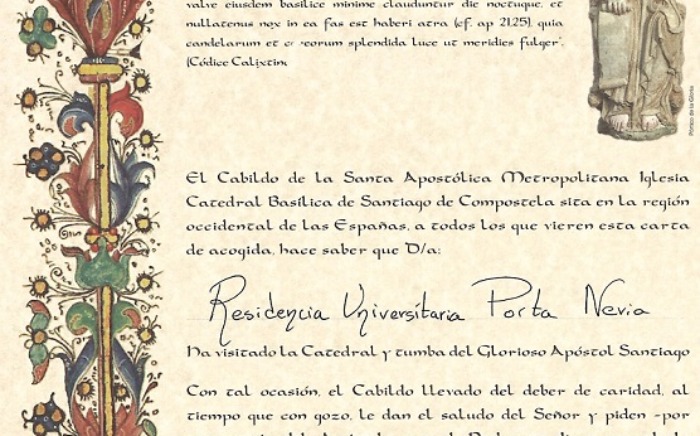 valve eiusdem basilice minime clauduntur die noctuque, et
nullatenus nox in ea fas est haberi atra (cf. ap 21,25), quia
candelarum et splendida luce ut meridies fulget".
(Códice Calixtin
Pórtico de la Gloria
El Cabildo de la Santa Apostólica Metropolitana Iglesia
Catedral Basílica de Santiago de Compostela sita en la región
occidental de las Españas, a todos los que vieren esta carta
de acogida, hace saber que D/a:
Residencia Universitaria Porta Nevia
Ha visitado la Catedral y tumba del Glorioso Apóstol Santiago
Con tal ocasión, el Cabildo llevado del deber de caridad, al
tiempo que con gozo, le dan el saludo del Señor y piden -por